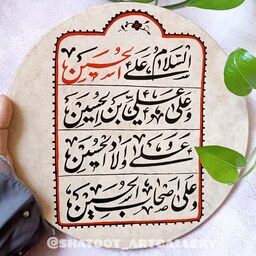 السلام علی الحسین
و علی علی بن الحسین
و علی اولاد الحسین
و علی اصحاب الحسین
@SHATOOT_ARTGALLERY